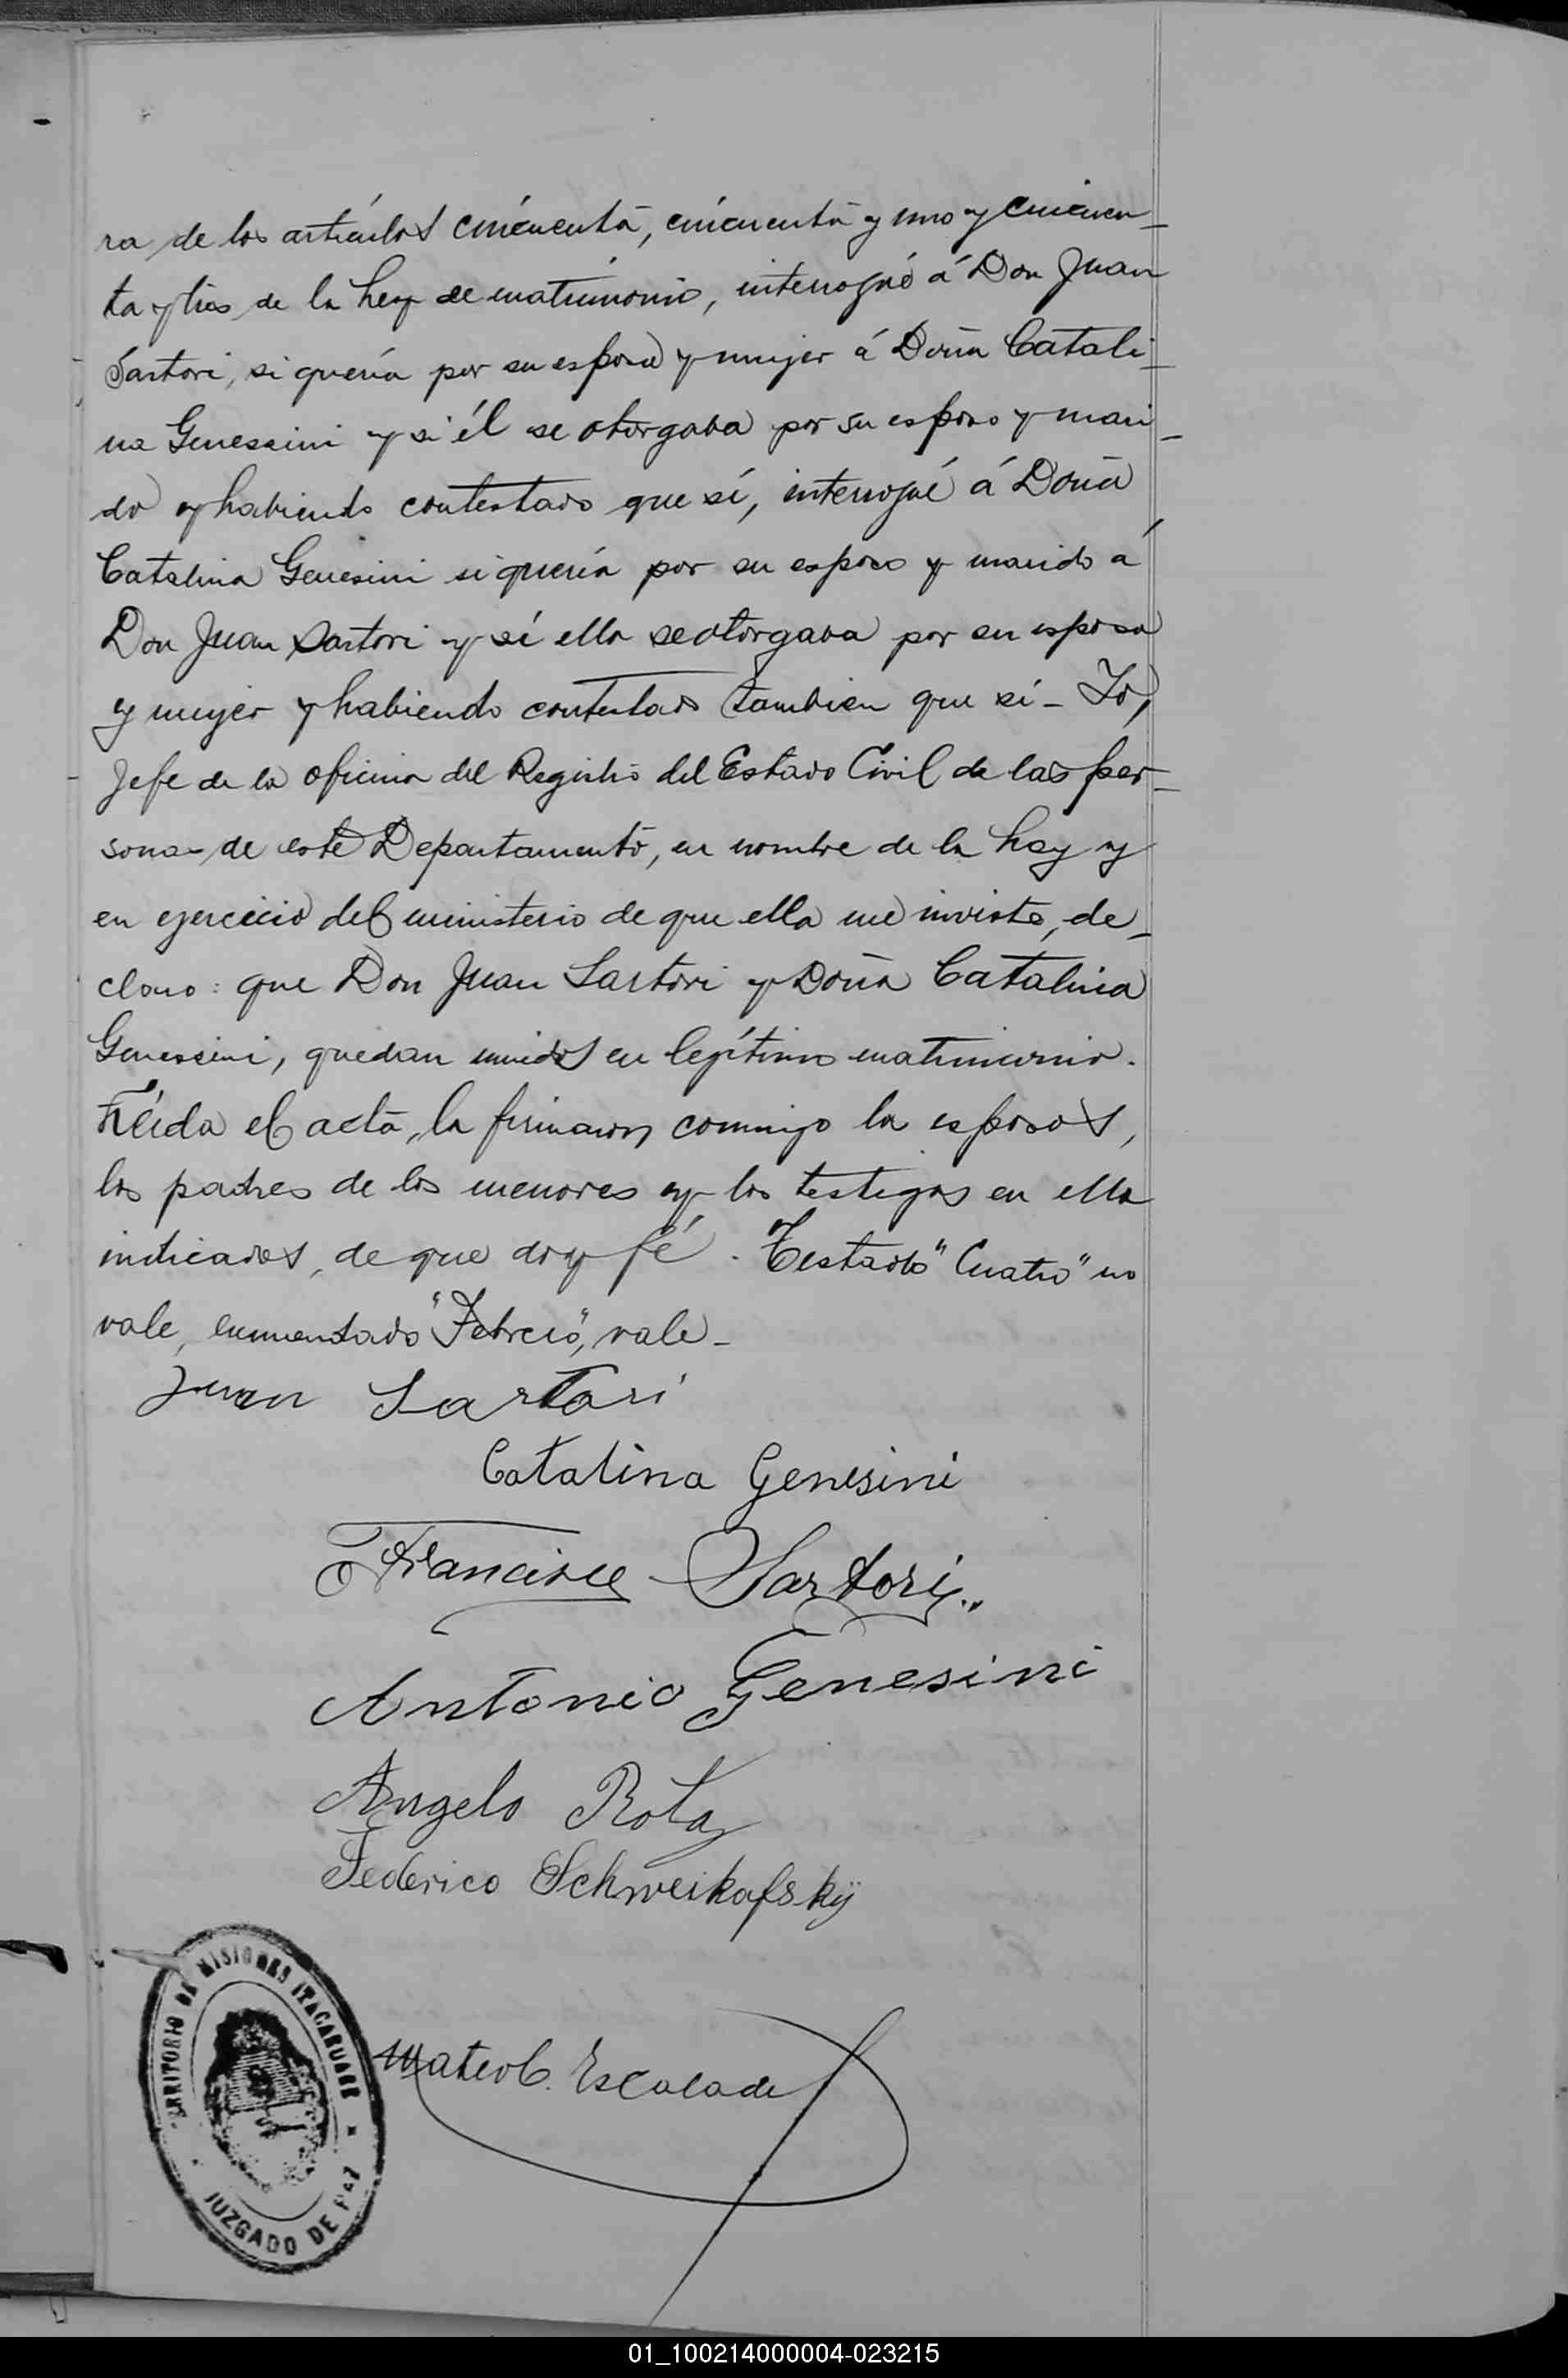 ra de los artículos cincuenta, cincuenta y uno y cincuen-
ta y tres de la Ley de matrimonio, interrogué á Don Juan
Sartori, si quería por su esposa y mujer á Doña Catali-
na Genessini y si él se otorgaba por su esposo y mari-
do y habiendo contestado que sí, interrogué á Doña
Catalina Genesini si quería por su esposo y marido á
Don Juan Sartori y si ella se otorgaba por su esposa
y mujer y habiendo contestado tambien que sí - Yo,
Jefe de la oficina del Registro del Estado Civil de las per-
sonas de este Departamento, en nombre de la Ley y
en ejercicio del ministerio de que ella me inviste, de-
claro: que Don Juan Sartori y Doña Catalina
Genessini, quedan unidos en legítimo matrimonio.
Leida el acta, la firmaron conmigo los esposos,
los padres de los menores y los testigos en ella
indicados, de que doy fé. Testado "Cuatro" no
vale, enmendado "Febrero", vale-
Juan Sartori
Catalina Genesini
Francisco Sartori
Antonio Genesini
Angelo Rota
Federico Schweikofsky
Mateo C. Escalada
TERRITORIO DE MISIONES ITACARUARE
JUZGADO DE PAZ
01_100214000004-023215